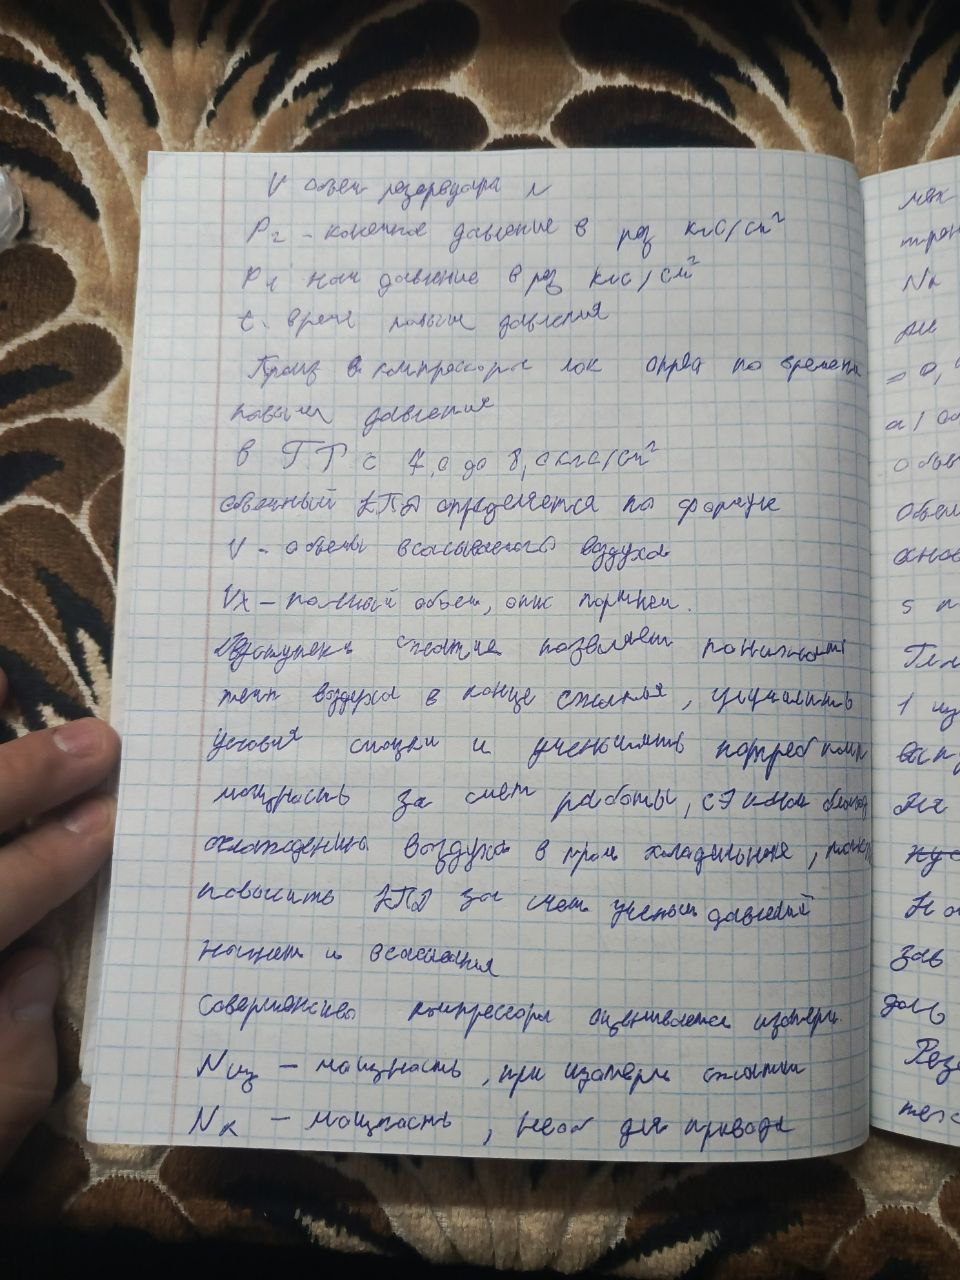 V объем резервуара л
P2 - конечное давление в рез кгс/см²
P1 нач давление в рез кгс/см²
t. время повыш давления
Произ в компрессоры лок опред по времени
повыш давления
в ГР с 7,0 до 8,0 кгс/см²
объемный КПД определяется по формуле
V - объем всасываемого воздуха
Vx - полный объем, опис поршнем.
Двухступенч сжатие позволяет понижать
темп воздуха в конце сжатия, улучшить
условия смазки и уменьшить потреб
мощность за счет работы, сэконом
охлаждения воздуха в пром холодильнике,
повысить КПД за счет уменьш давлений
нагнет и всасывания
Совершенство компрессора оценивается изотерм.
Nиз - мощность, при изотерм сжатии
Nк - мощность, необ для привода
Nк
= 0,
объ
объем
основ
1
На
зав